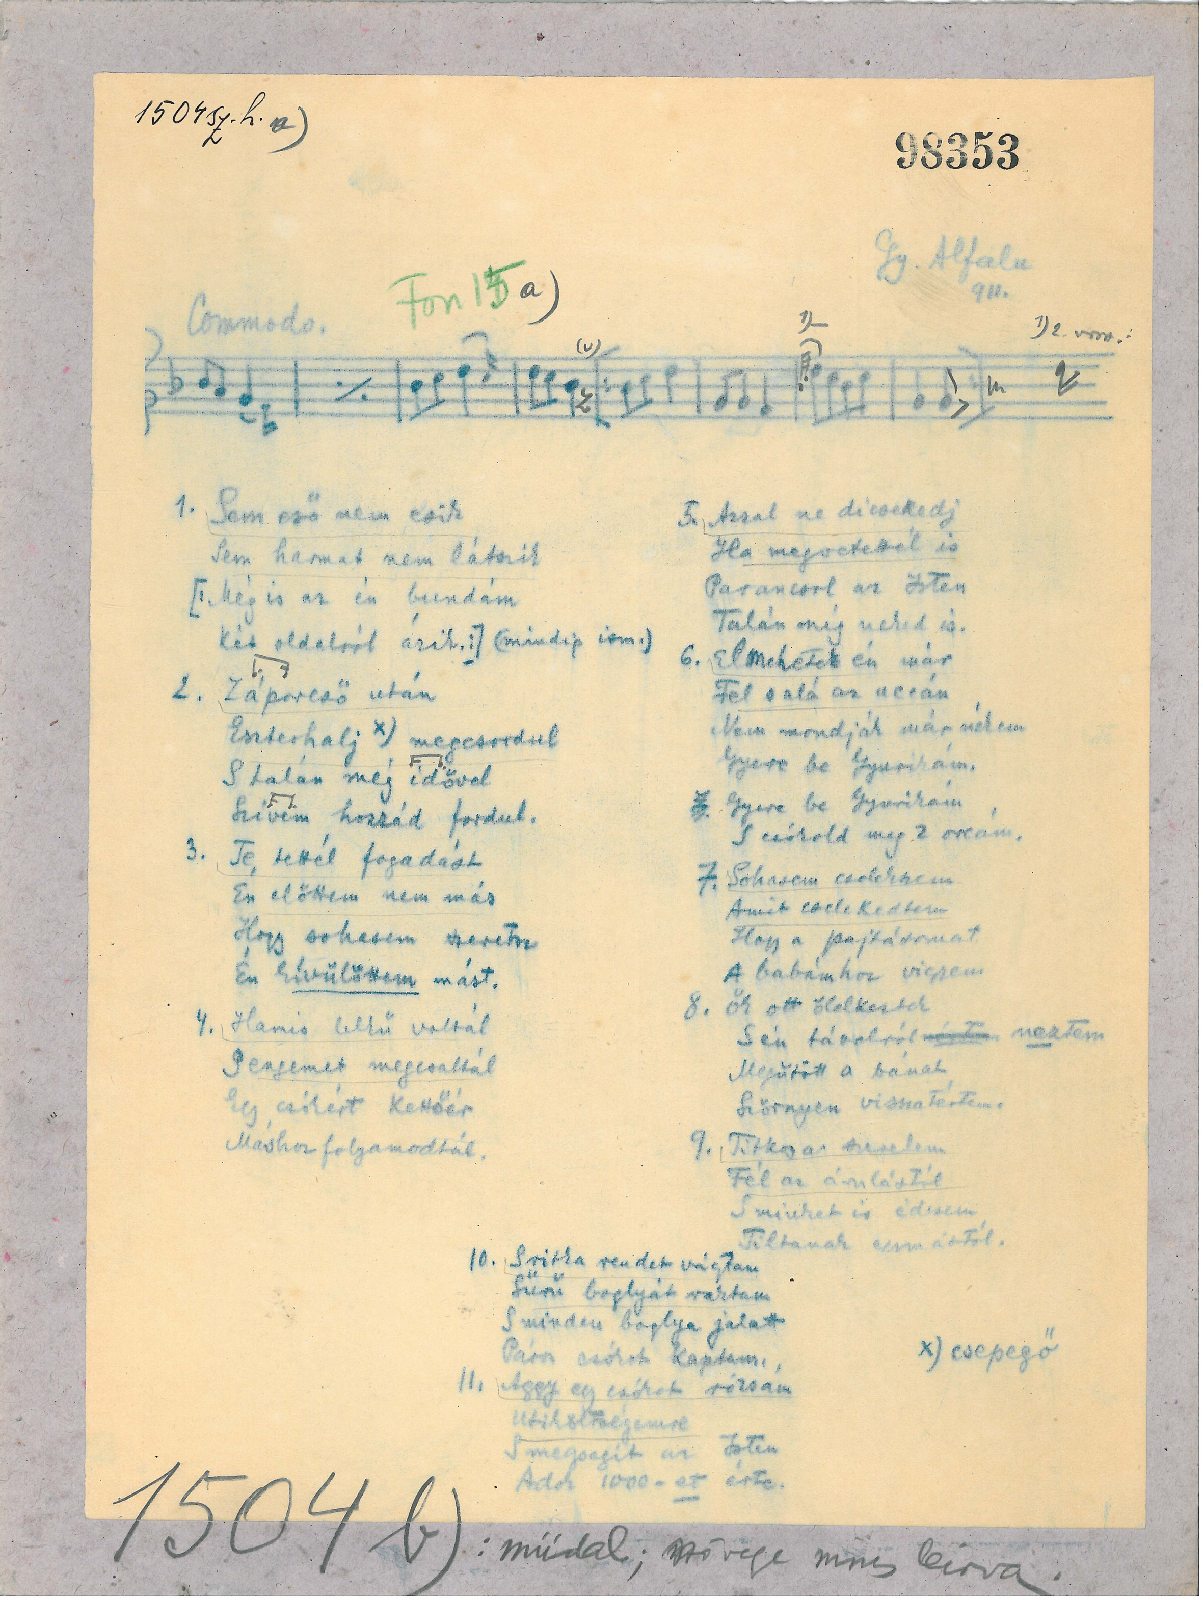 1504 Sz. h. a)
98353
Gy. Alfalu
911.
Fon 15 a)
Commodo.
1)
(v)
1) 2. vers.:
1. Sem eső nem esik
Sem harmat nem látszik
[: Még is az én bundám
Két oldalról ázik. :] (mindig ism.)
2. Záporeső után
Eszterhalj x) megcsordul
S talán még idővel
Szívem hozzád fordul.
3. Te, tettél fogadást
Én előttem nem más
Hogy sohasem szeretsz
Én kivülöttem mást.
4. Hamis lelkű voltál
Engemet megcsaltál
Egy csókért kettőér
Máshoz folyamodtál.
5. Azzal ne dicsekedj
Ha megvetettél is
Parancsol az Isten
Talán még neked is.
6. Elmehetek én már
Fel s alá az uccán
Nem mondják már nékem
Gyere be Gyurikám.
Gyere be Gyurikám,
S csókold meg 2 orcám.
7. Sohasem cselekszem
Amit cselekedtem
Hogy a pajtásomat
A babámhoz vigyem
8. Ők ott
S én távolról neztem
Megütött a bánat
Szörnyen visszatértem.
9. Titkos a szerelem
Fél az árulástól
S minket is édesem
Tiltanak egymástól.
10. S ritka rendet vágtam
Sűrű boglyát raktam
S minden boglya jalatt
Páros csókot kaptam.,
11. Aggy egy csókot rózsám
Utiköltségemre
S megsegit az Isten
Adok 1000-et érte.
x) csepegő
1504 b) : műdal; szövege nincs leirva.